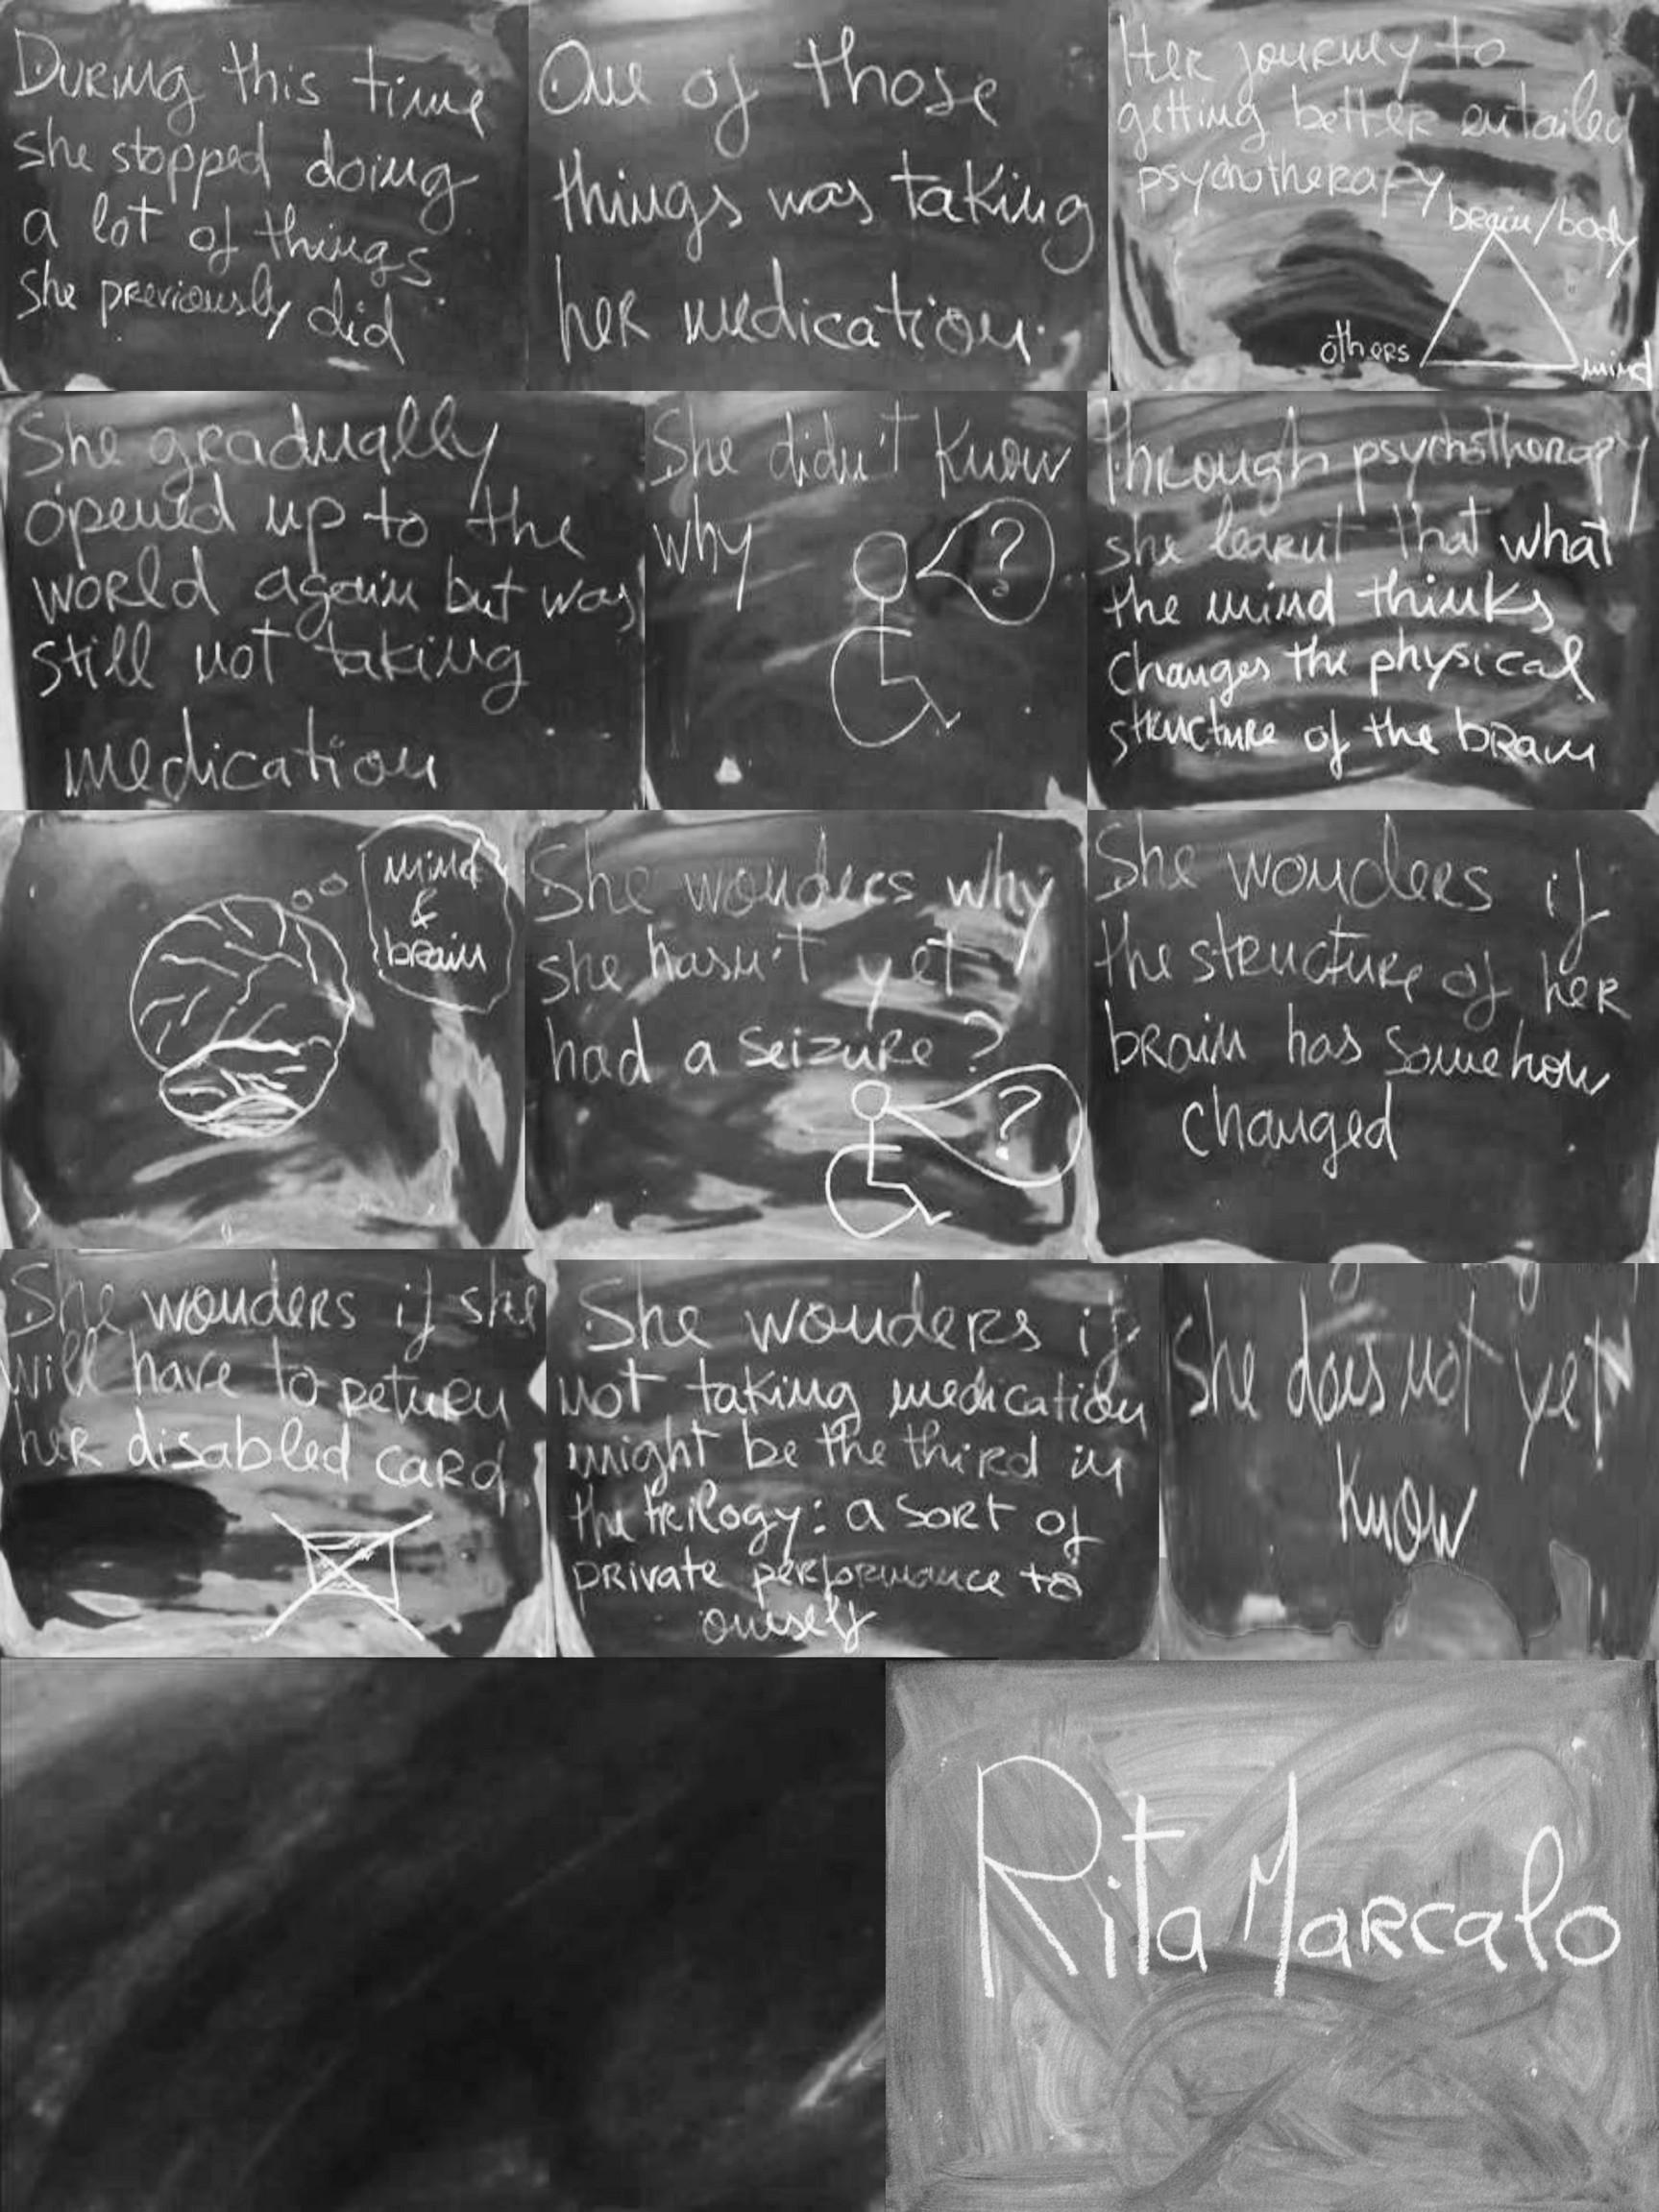 During this time
she stopped doing
a lot of things
she previously did
One of those
things was taking
her medication.
Her journey to
getting better entailed
psychotherapy
brain/body
others
mind
She gradually
opened up to the
world again but was
still not taking
medication
She didn't know
why
?
Through psychotherapy
she learnt that what
the mind thinks
changes the physical
structure of the brain
mind
&
brain
She wonders why
she hasn't yet
had a seizure?
?
She wonders if
the structure of her
brain has somehow
changed
She wonders if she
will have to return
her disabled card.
She wonders if
not taking medication
might be the third in
the trilogy: a sort of
private performance to
oneself
She does not yet
know
Rita Marcalo